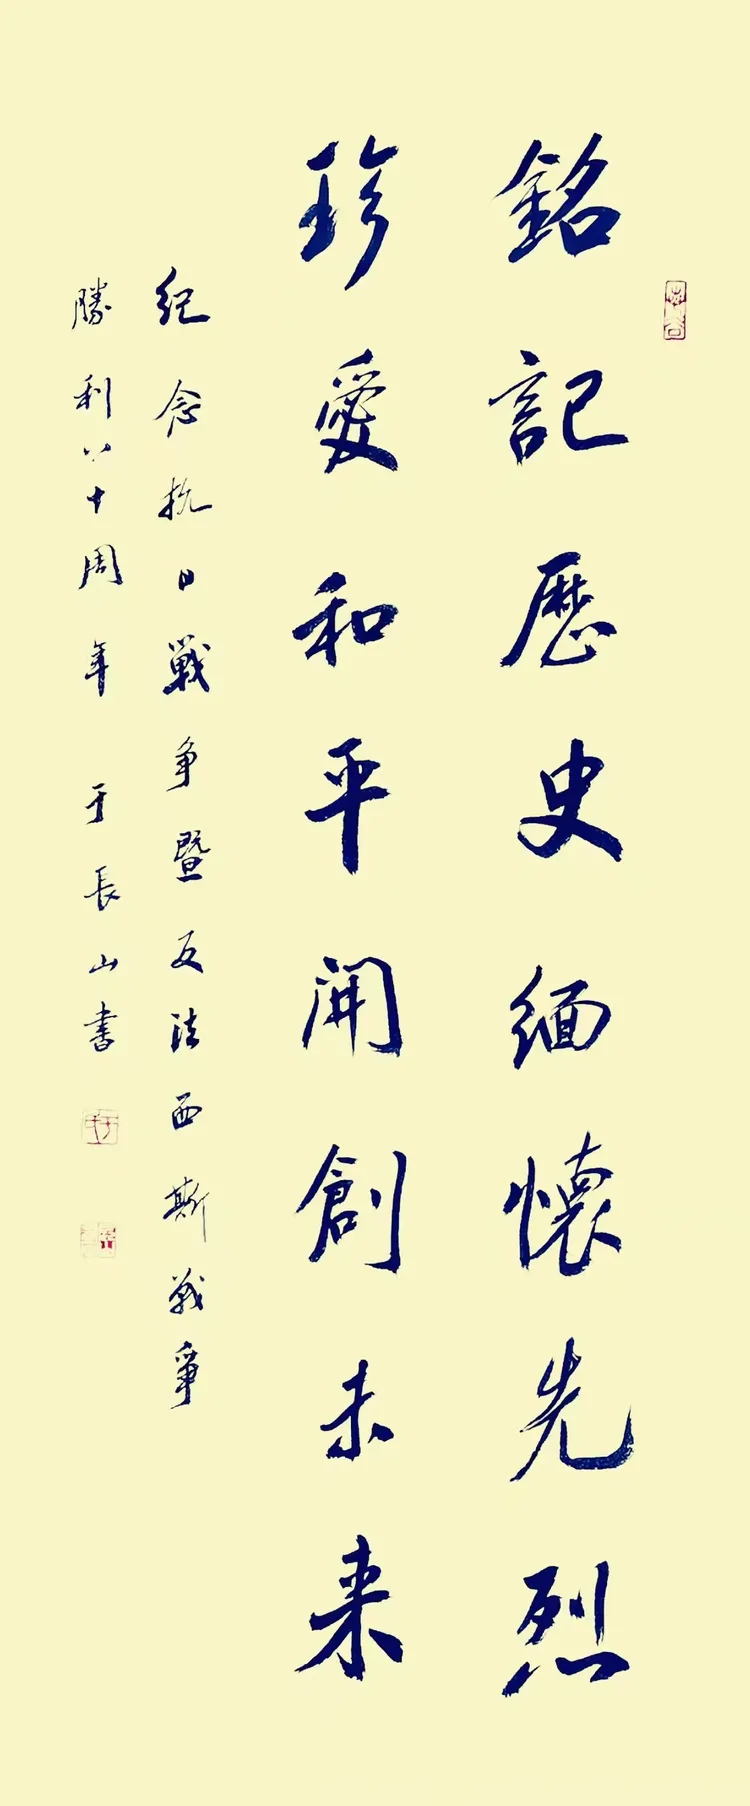 銘記歷史緬懷先烈
珍愛和平開創未来
紀念抗日戰争暨反法西斯戰爭
勝利八十周年 于長山書